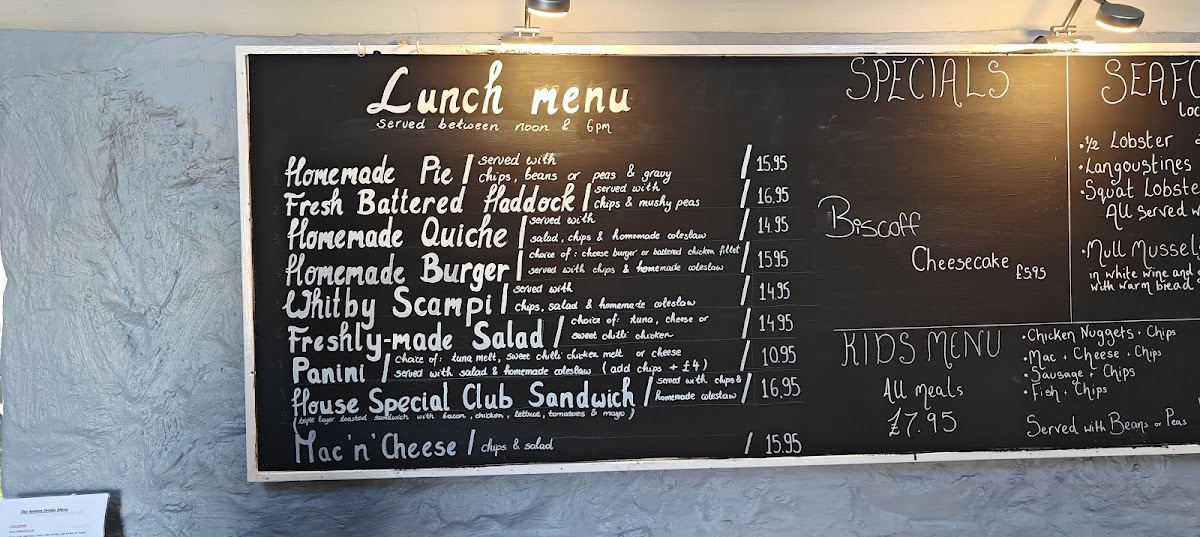 Lunch menu
Served between noon & 6pm
Homemade Pie / served with chips, beans or peas & gravy / 15.95
Fresh Battered Haddock / served with chips & mushy peas / 16.95
Homemade Quiche / served with salad, chips & homemade coleslaw / 14.95
Homemade Burger / choice of: cheese burger or battered chicken fillet served with chips & homemade coleslaw / 15.95
Whitby Scampi / served with chips, salad & homemade coleslaw / 14.95
Freshly-made Salad / choice of: tuna, cheese or sweet chilli chicken / 14.95
Panini / choice of: tuna melt, sweet chilli chicken melt or cheese served with salad & homemade coleslaw (add chips + £4) / 10.95
House Special Club Sandwich / served with chips & homemade coleslaw / 16.95
layer toasted sandwich with bacon, chicken, lettuce, tomatoes & mayo)
Mac 'n' Cheese / chips & salad / 15.95
SPECIALS
Biscoff
Cheesecake £5.95
KIDS MENU
All meals
£7.95
• Chicken Nuggets + Chips
• Mac + Cheese + Chips
• Sausage + Chips
• Fish + Chips
Served with Beans or Peas
SEAFO
Loc
• ½ Lobster
• Langoustines
• Squat Lobste
All served w
• Mull Mussels
in white wine and
with warm bread
The Drinks Menu